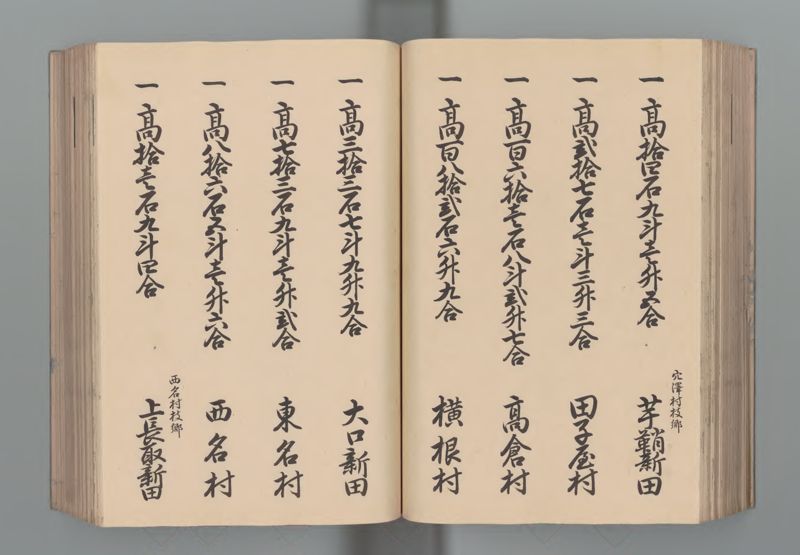 一高拾四石九斗壱升五合
穴澤村枝郷
芋鞘新田
一高弐拾七石壱斗三升三合
田子屋村
一高百六拾壱石八斗弐升七合
高倉村
一高百八拾弐石六升九合
横根村
一高三拾三石七斗九升九合
大口新田
一高七拾三石九斗壱升弐合
東名村
一高八拾六石五斗壱升六合
西名村
一高拾壱石九斗四合
西名村枝郷
上長取新田